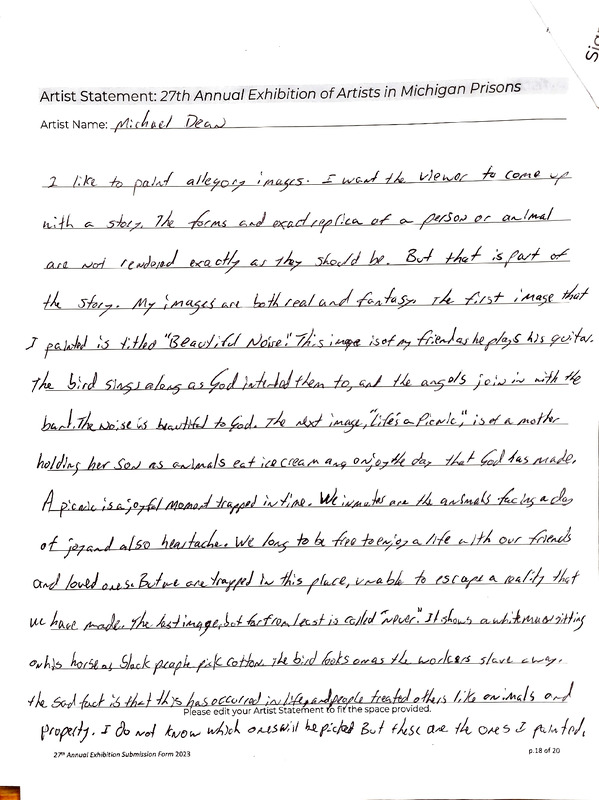 Sign
Artist Statement: 27th Annual Exhibition of Artists in Michigan Prisons
Artist Name: Michael Dean
I like to paint allegory images. I want the viewer to come up
with a story. The forms and exact replica of a person or animal
are not rendered exactly as they should be. But that is part of
the story. My images are both real and fantasy. The first image that
I painted is titled "Beautiful Noise." This image is of my friend as he plays his guitar.
The bird sings along as God intended them to, and the angels join in with the
band. The noise is beautiful to God. The next image, "Life's a Picnic," is of a mother
holding her son as animals eat ice cream and enjoy the day that God has made.
A picnic is a joyful moment trapped in time. We inmates are the animals facing a day
of joy and also heartache. We long to be free to enjoy a life with our friends
and loved ones. But we are trapped in this place, unable to escape a reality that
we have made. The last image, but far from least is called "Never." It shows a white man sitting
on his horse as black people pick cotton. The bird looks on as the workers slave away.
The sad fact is that this has occurred in life, and people treated others like animals and
Please edit your Artist Statement to fit the space provided.
property. I do not know which ones will be picked But these are the ones I painted.
27th Annual Exhibition Submission Form 2023
p.18 of 20